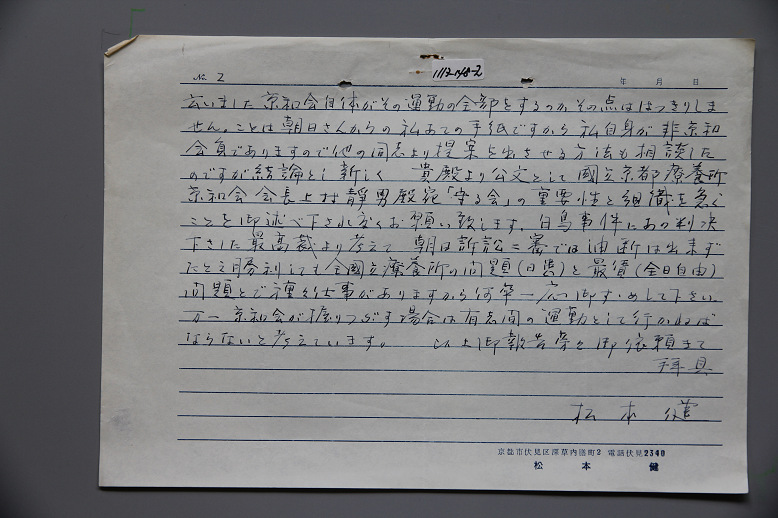 No. 2
1112-148-2
年 月 日
云いました 京和会自体がその運動の全部をするのか、その点ははっきりしま
せん。ことは朝日さんからの私あての手紙ですから 私自身が非京和
会員でありますので他の同志より提案を出させる方法も相談した
のですが結論とし新しく 貴殿より公文として 国立京都療養所
京和会 会長上村静男殿宛「守る会」の重要性と組織を急ぐ
ことを御述べ下され度くお願い致します。白鳥事件にあの判決
下さした最高裁より考えて 朝日訴訟二審では油断は出来ず
たとえ勝利しても全国立療養所の問題(日患)と最賃(全日自由)
問題とで種々仕事がありますから何卒一応御すゝめして下さい
万一 京和会が握りつぶす場合は有志間の運動として行かねば
ならないと考えています。 以上御報告旁々御依頼まで
拝具
松本健
京都市伏見区深草内膳町2 電話伏見2340
松本 健